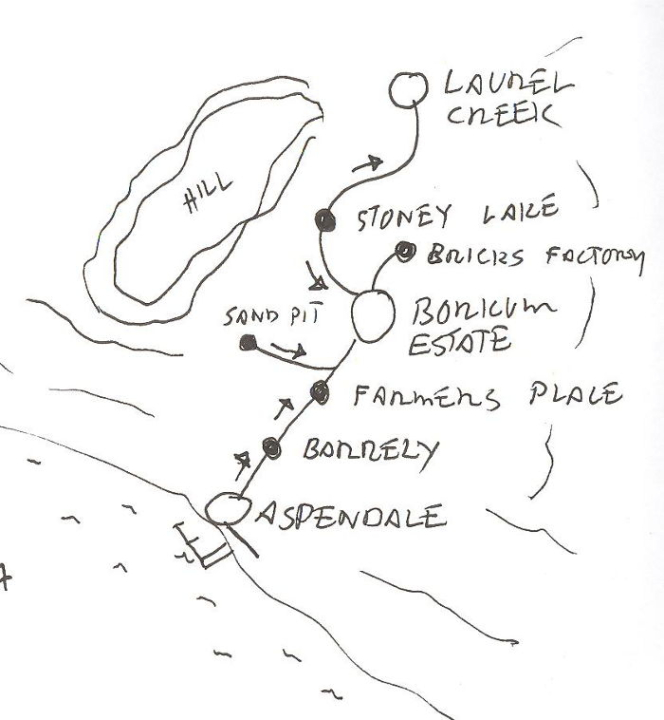 LAUREL
CREEK
HILL
STONEY LAKE
BRICKS FACTORY
SAND PIT
BORICUM
ESTATE
FARMERS PLACE
BARRELY
ASPENDALE